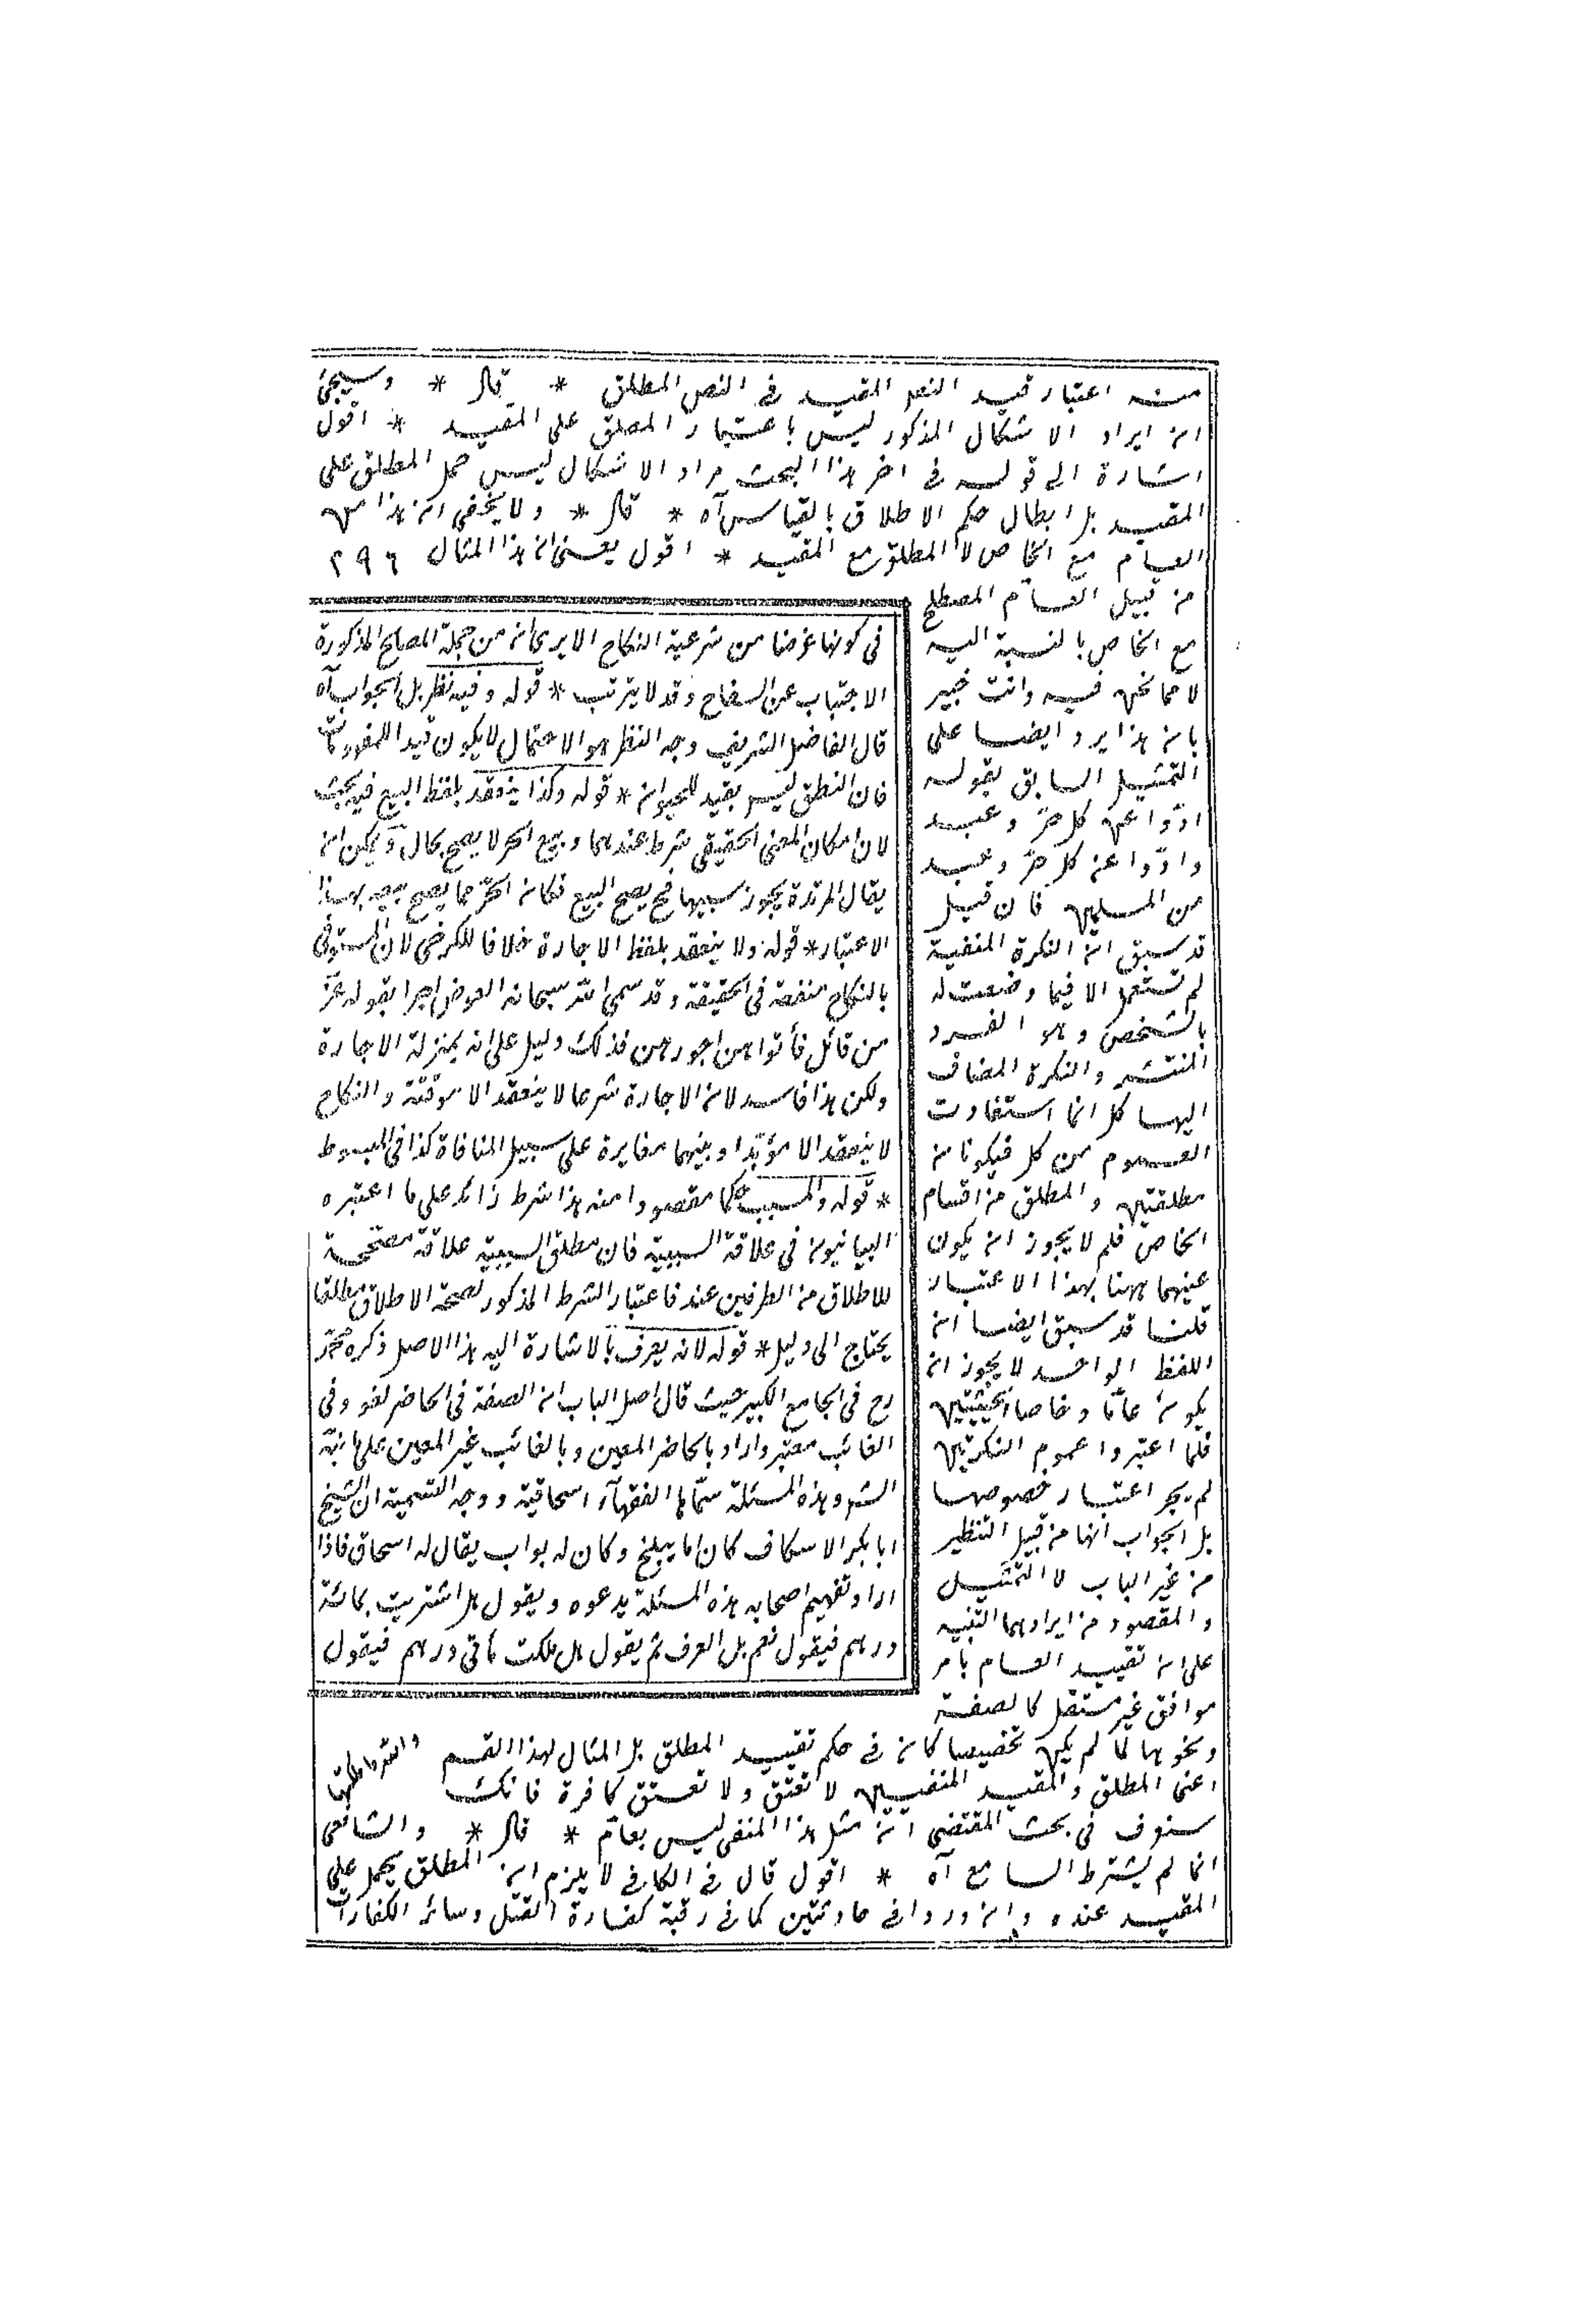 منه اعتبار قيد النص المقيد فى النص المطلق * قال * وسيجئ
ان ايراد الاشكال المذكور ليس باعتبار المطلق على المقيد * اقول
اشارة الى قوله فى اخر هذا البحث مراد الاشكال ليس حمل المطلق على
المقيد بل ابطال حكم الاطلاق بالقياس آه * قال * ولا يخفى ان هذا من
العام مع الخاص لا المطلق مع المقيد * اقول يعنى ان هذا المثال ٢٩٦
من قبيل العام المصطلح
مع الخاص بالنسبة اليه
لا مما نحن فيه وانت خبير
بان هذا يرد ايضا على
التمثيل السابق بقوله
ادوا عن كل حر وعبد
وادوا عن كل حر وعبد
من المسلمين فان قيل
قد سبق ان النكرة المنفية
لم تستعمل الا فيما وضعت له
بالشخص وهو الفرد
المنتشر والنكرة المضاف
اليها كل انما استفادت
العموم من كل فيكونان
مطلقتين والمطلق من اقسام
الخاص فلم لا يجوز ان يكون
عينهما ههنا بهذا الاعتبار
قلنا قد سبق ايضا ان
اللفظ الواحد لا يجوز ان
يكون عاما وخاصا بحيثيتين
فلما اعتبروا عموم النكرتين
لم يجر اعتبار خصوصها
بل الجواب انها من قبيل التنظير
من غير الباب لا التمثيل
والمقصود من ايرادهما التنبيه
على ان تقييد العام بامر
موافق غير مستقل كالصفة
ونحوها لما لم يكن تخصيصا كان فى حكم تقييد المطلق بل المثال لهذا القسم
اعنى المطلق والمقيد المنفيين لا تعتق ولا تعتق كافرة فانك
ستعرف فى بحث المقتضى ان مثل هذا المنفى ليس بعام * قال * والشافعى
انما لم يشترط السامع آه * اقول قال فى الكافى لا يلزم ان المطلق يحمل على
المقيد عنده وان وردا فى حادثتين كما فى رقبة كفارة القتل وسائر الكفارات
فى كونها غرضا من شرعية النكاح الا يرى انه من جملة المصالح المذكورة
الاجتناب عن السفاح وقد لا يترتب * قوله وفيه نظر بل الجواب آه
قال الفاضل الشريف وجه النظر هو الاحتمال لا يكون قيدا للمفهوم
فان النطق ليس بقيد للحيوان * قوله وكذا ينعقد بلفظ البيع فيه بحث
لان امكان المعنى الحقيقى شرط عندهما وبيع الحر لا يصح بحال ويمكن ان
يقال المرتدة يجوز سبيها فح يصح البيع فكان الحر مما يصح بيعه بهذا
الاعتبار * قوله ولا ينعقد بلفظ الاجارة خلافا للكرخى لان المستوفى
بالنكاح منفعة فى الحقيقة وقد سمى الله سبحانه العوض اجرا بقوله عز
من قائل فآتوهن اجورهن فذلك دليل على انه بمنزلة الاجارة
ولكن هذا فاسد لان الاجارة شرعا لا ينعقد الا موقتة والنكاح
لا ينعقد الا مؤبدا وبينهما مغايرة على سبيل المنافاة كذا فى المبسوط
* قوله والمسبب حكما مقصودا منه هذا شرط زائد على ما اعتبره
البيانيون فى علاقة السببية فان مطلق السببية علاقة مصححة
للاطلاق من الطرفين عند فاعتبار الشرط المذكور لصحة الاطلاق مطلقا
يحتاج الى دليل * قوله لانه يعرف بالاشارة اليه هذا الاصل ذكره محمد
رح فى الجامع الكبير حيث قال اصل الباب ان الصفة فى الحاضر لغو وفى
الغائب معتبر واراد بالحاضر المعين وبالغائب غير المعين على ما بينه
الشر وهذه المسئلة سماها الفقهآء اسحاقية ووجه التسمية ان الشيخ
ابا بكر الاسكاف كان اما ببلخ وكان له بواب يقال له اسحاق فاذا
اراد تفهيم اصحابه هذه المسئلة يدعوه ويقول هل اشتريت بمائة
درهم فيقول نعم بل العرف ثم يقول هل ملكت مأتى درهم فيقول